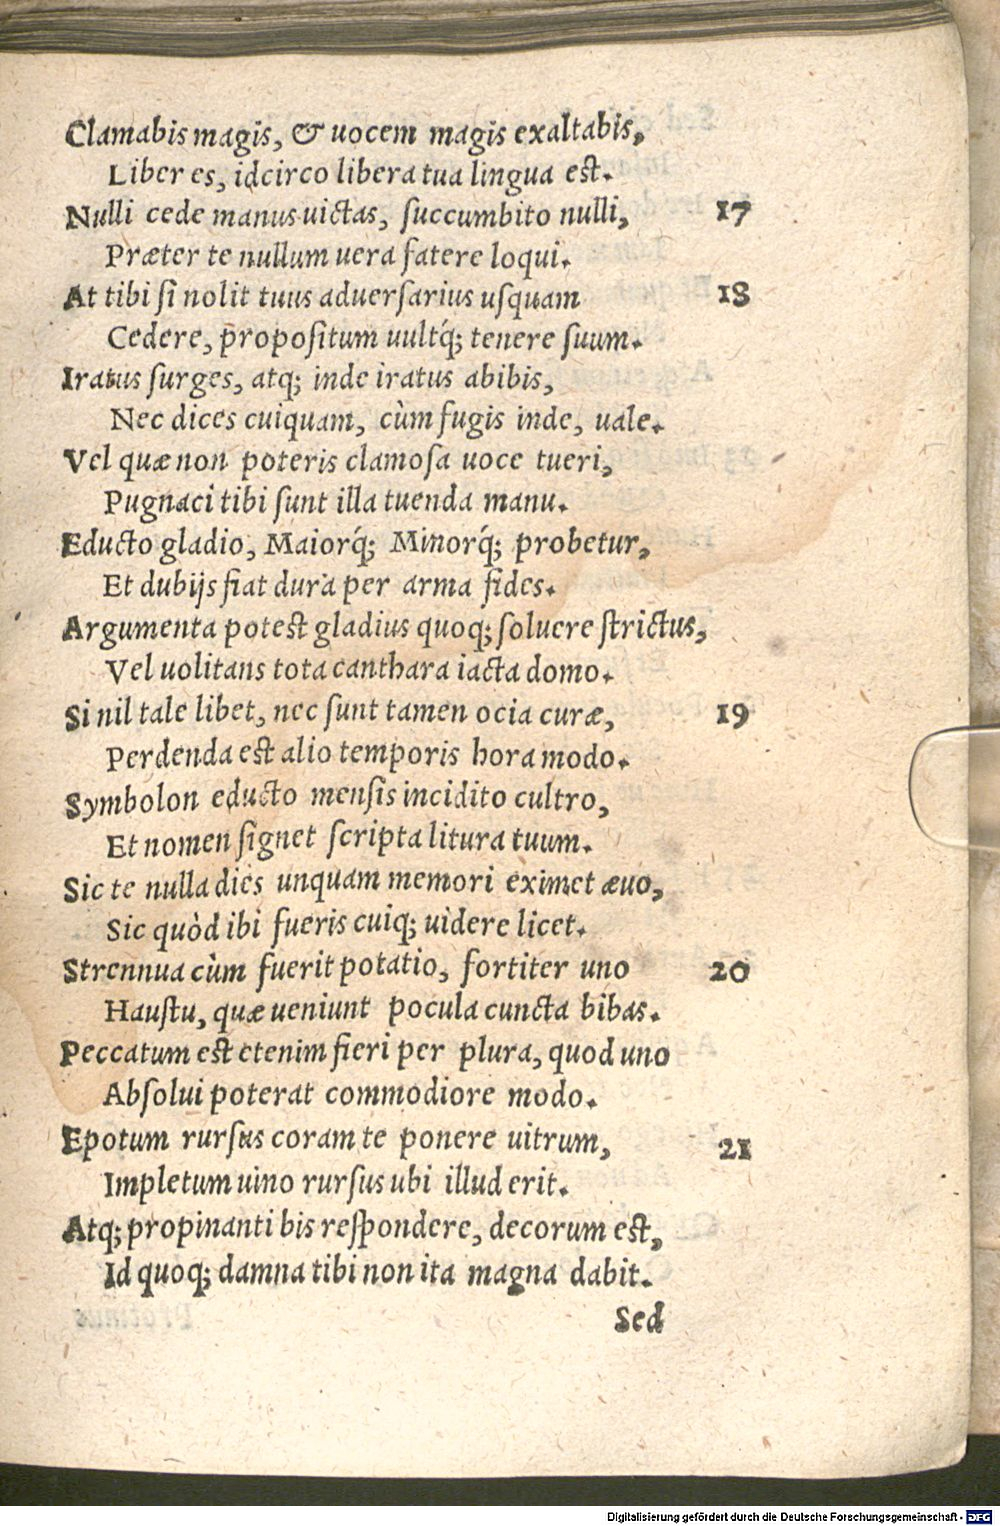 Clamabis magis, & uocem magis exaltabis,
Liber es, idcirco libera tua lingua est.
Nulli cede manus uictas, succumbito nulli, 17
Præter te nullum uera fatere loqui.
At tibi si nolit tuus aduersarius usquam 18
Cedere, propositum uultq́; tenere suum.
Iratus surges, atq; inde iratus abibis,
Nec dices cuiquam, cùm fugis inde, uale.
Vel quæ non poteris clamosa uoce tueri,
Pugnaci tibi sunt illa tuenda manu.
Educto gladio, Maiorq́; Minorq́; probetur,
Et dubijs fiat dura per arma fides.
Argumenta potest gladius quoq; soluere strictus,
Vel uolitans tota canthara iacta domo.
Si nil tale libet, nec sunt tamen ocia curæ, 19
Perdenda est alio temporis hora modo.
Symbolon educto mensis incidito cultro,
Et nomen signet scripta litura tuum.
Sic te nulla dies unquam memori eximet æuo,
Sic quòd ibi fueris cuiq; uidere licet.
Strennua cùm fuerit potatio, fortiter uno 20
Haustu, quæ ueniunt pocula cuncta bibas.
Peccatum est etenim fieri per plura, quod uno
Absolui poterat commodiore modo.
Epotum rursus coram te ponere uitrum, 21
Impletum uino rursus ubi illud erit.
Atq; propinanti bis respondere, decorum est,
Id quoq; damna tibi non ita magna dabit.
Sed
Digitalisierung gefördert durch die Deutsche Forschungsgemeinschaft - DFG